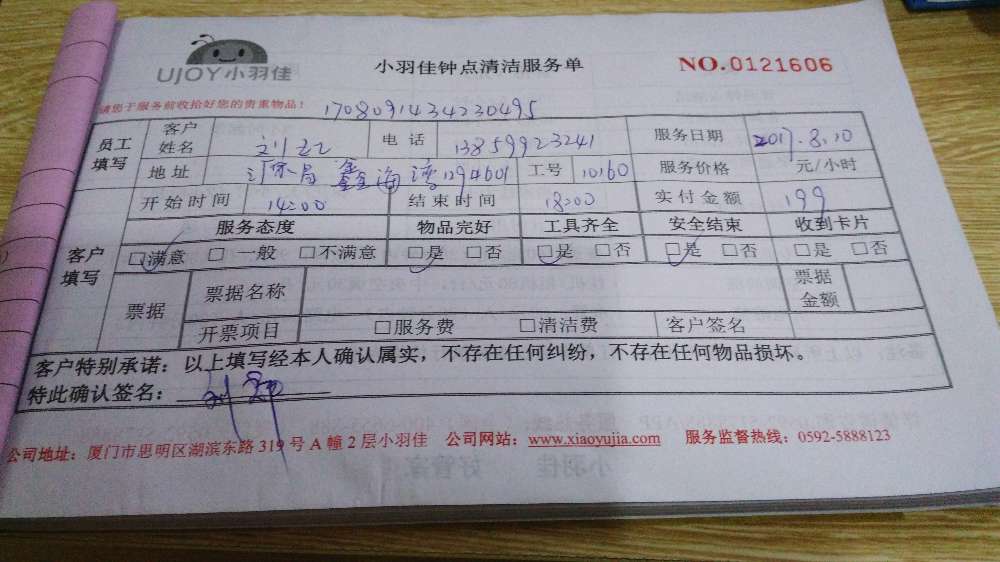 UJOY小羽佳 小羽佳钟点清洁服务单 NO.0121606
请您于服务前收拾好您的贵重物品！ 1708091434230495
员工填写 客户姓名 刘 电话 13859923241 服务日期 2017.8.10
地址 鑫海湾 1294601 工号 10160 服务价格 元/小时
开始时间 14:00 结束时间 18:00 实付金额 199
客户填写 服务态度 物品完好 工具齐全 安全结束 收到卡片
☑满意 □一般 □不满意 ☑是 □否 ☑是 □否 ☑是 □否 □是 □否
票据 票据名称 票据金额
开票项目 □服务费 □清洁费 客户签名
客户特别承诺：以上填写经本人确认属实，不存在任何纠纷，不存在任何物品损坏。
特此确认签名：刘
公司地址：厦门市思明区湖滨东路319号A幢2层小羽佳 公司网站：www.xiaoyujia.com 服务监督热线：0592-5888123